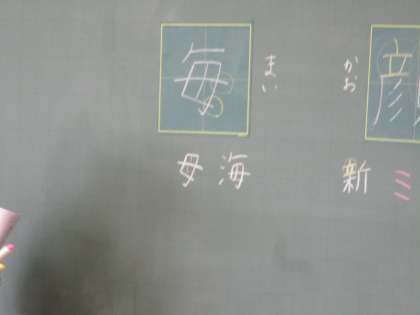 毎
まい
母 海
顔
かお
新 ミ